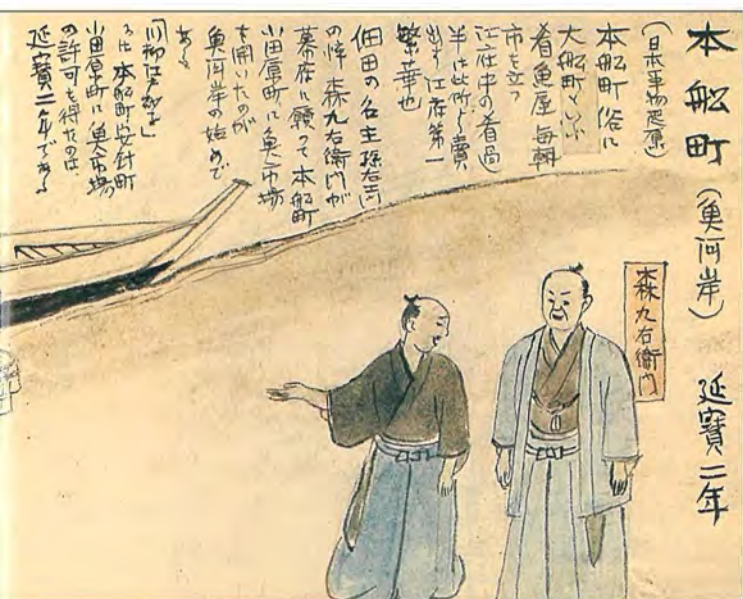 本船町(魚河岸) 延寶二年
(日本事物起原)
本船町 俗に
大船町といふ
肴魚屋毎朝
市を立つ
江府中の肴過
半は此所より賣
出す 江府第一
繁華也
佃田の名主孫右エ門
の悴 森九右衛門が
幕府に願って本船町
小田原町に魚市場
を開いたのが
魚河岸の始めで
ある
「川柳江戸
には 本船町安針町
小田原町に魚市場
の許可を得たのは
延寶二年である
森九右衛門